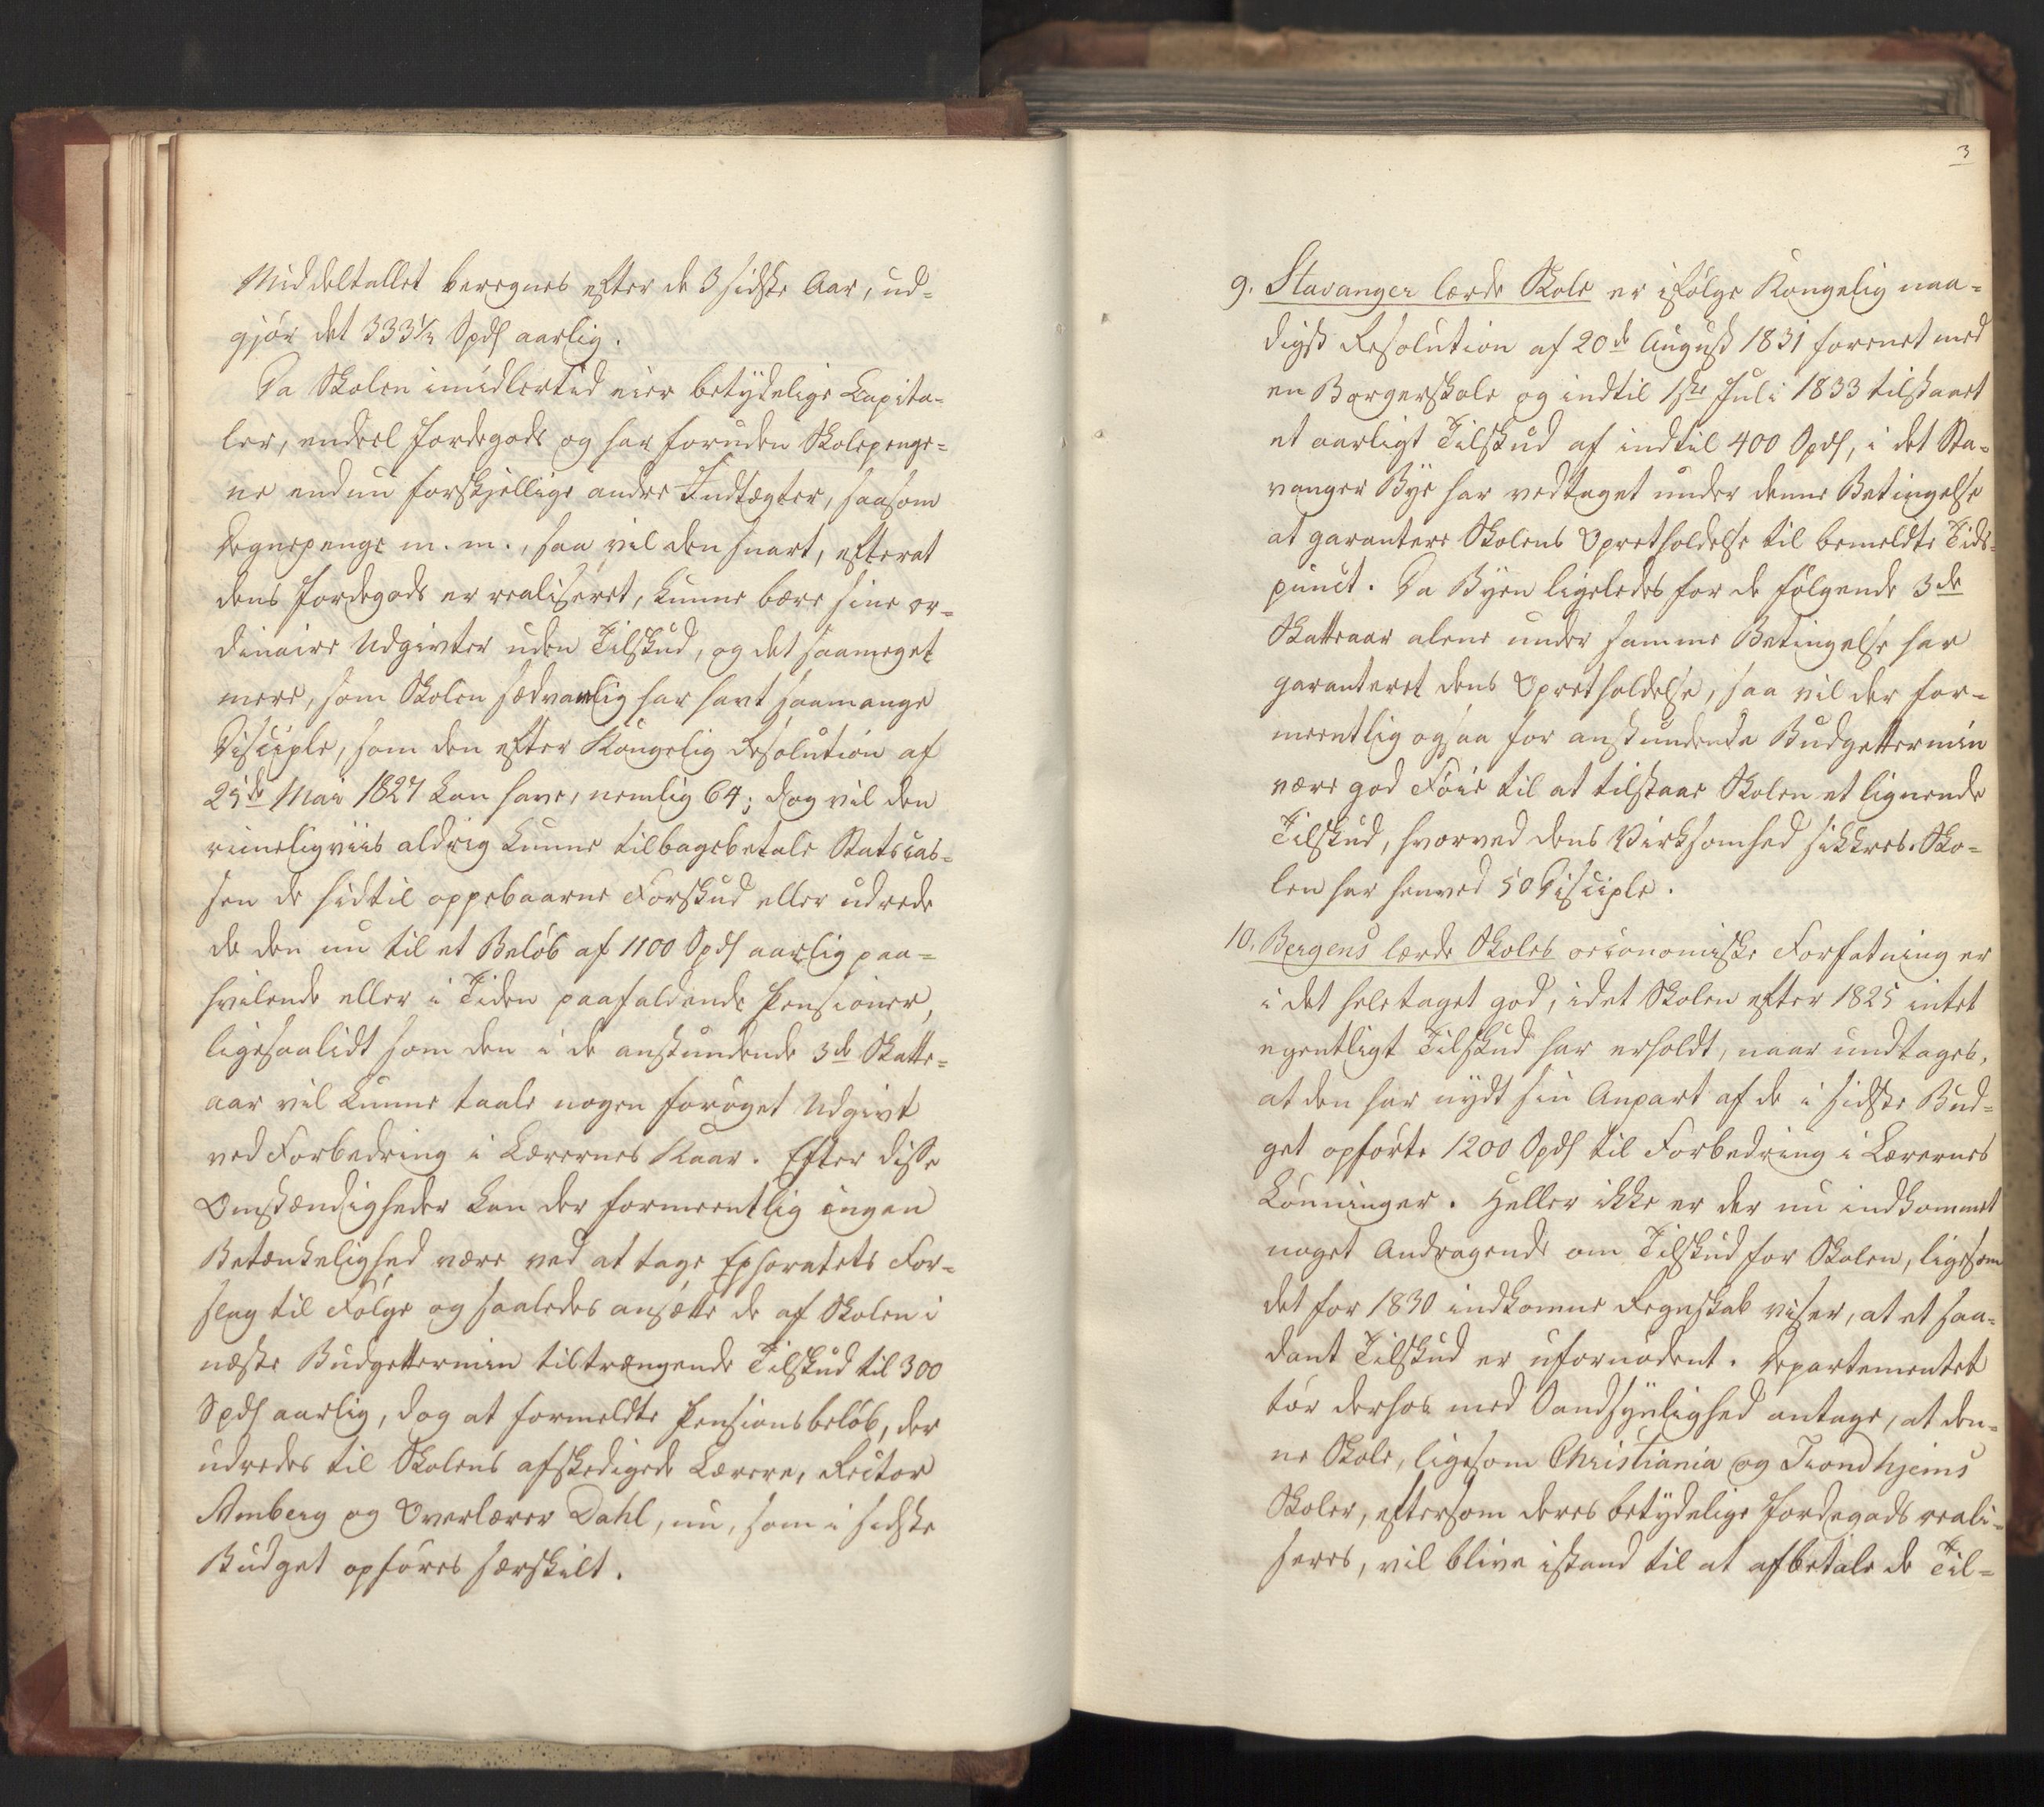 Middeltallet beregnes efter de 3 sidste Aar, ud-
gjør det 333⅓ Spds aarlig.
Da Skolen imidlertid eier betydelige Capita-
ler, endeel Jordegods og har foruden Skolepenge-
ne endnu forskjellige andre Indtægter, saasom
Degnepenge m. m., saa vil den snart, efterat
dens Jordegods er realiseret, kunne bære sine or-
dinaire Udgivter uden Tilskud, og det saameget
mere, som Skolen sædvanlig har havt saamange
Disciple, som den efter Kongelig Resolution af
25de Mai 1827 kan have, nemlig 64; dog vil den
rimeligviis aldrig kunne tilbagebetale Statscas-
sen de hidtil oppebaarne Forskud eller udrede
de den nu til et Beløb af 1100 Spds aarlig paa-
hvilende eller i Tiden paafaldende Pensioner,
ligesaalidt som den i de anstundende 3de Skatte-
aar vil kunne taale nogen forøget Udgivt
ved Forbedring i Lærernes Kaar. Efter disse
Omstændigheder kan der formeentlig ingen
Betænkelighed være ved at tage Ephoratets For-
slag til Følge og saaledes ansætte de af Skolen i
næste Budgettermin tiltrængende Tilskud til 300
Spds aarlig, dog at formeldte Pensionsbeløb, der
udredes til Skolens afskedigede Lærere, Rector
Amberg og Overlærer Dahl, nu, som i sidste
Budget opføres særskilt.
3
9. Stavanger lærde Skole er ifølge Kongelig naa-
digst Resolution af 20de August 1831 forenet med
en Borgerskole og indtil 1ste Juli 1833 tilstaaet
et aarligt Tilskud af indtil 400 Spds, i det Sta-
vanger Bye har vedtaget under denne Betingelse
at garantere Skolens Opretholdelse til bemeldte Tids-
punct. Da Byen ligeledes for de følgende 3de
Skatteaar alene under samme Betingelse har
garanteret dens Opretholdelse, saa vil der for-
meentlig ogsaa for anstundende Budgettermin
være god Føie til at tilstaae Skolen et lignende
Tilskud, hvorved dens Virksomhed sikkres. Sko-
len har henved 50 Disciple.
10. Bergens lærde Skoles oeconomiske Forfatning er
i det heletaget god, idet Skolen efter 1825 intet
egentligt Tilskud har erholdt, naar undtages,
at den har nydt sin Anpart af de i sidste Bud-
get opførte 1200 Spds til Forbedring i Lærernes
Lønninger. Heller ikke er der nu indkommet
noget Andragende om Tilskud for Skolen, ligesom
det for 1830 indkomne Regnskab viser, at et saa-
dant Tilskud er ufornødent. Departementet
tør derhos med Sandsynlighed antage, at den-
ne Skole, ligesom Christiania og Trondhjems
Skoler, eftersom deres betydelige Jordegods reali-
seres, vil blive istand til at afbetale de Til-